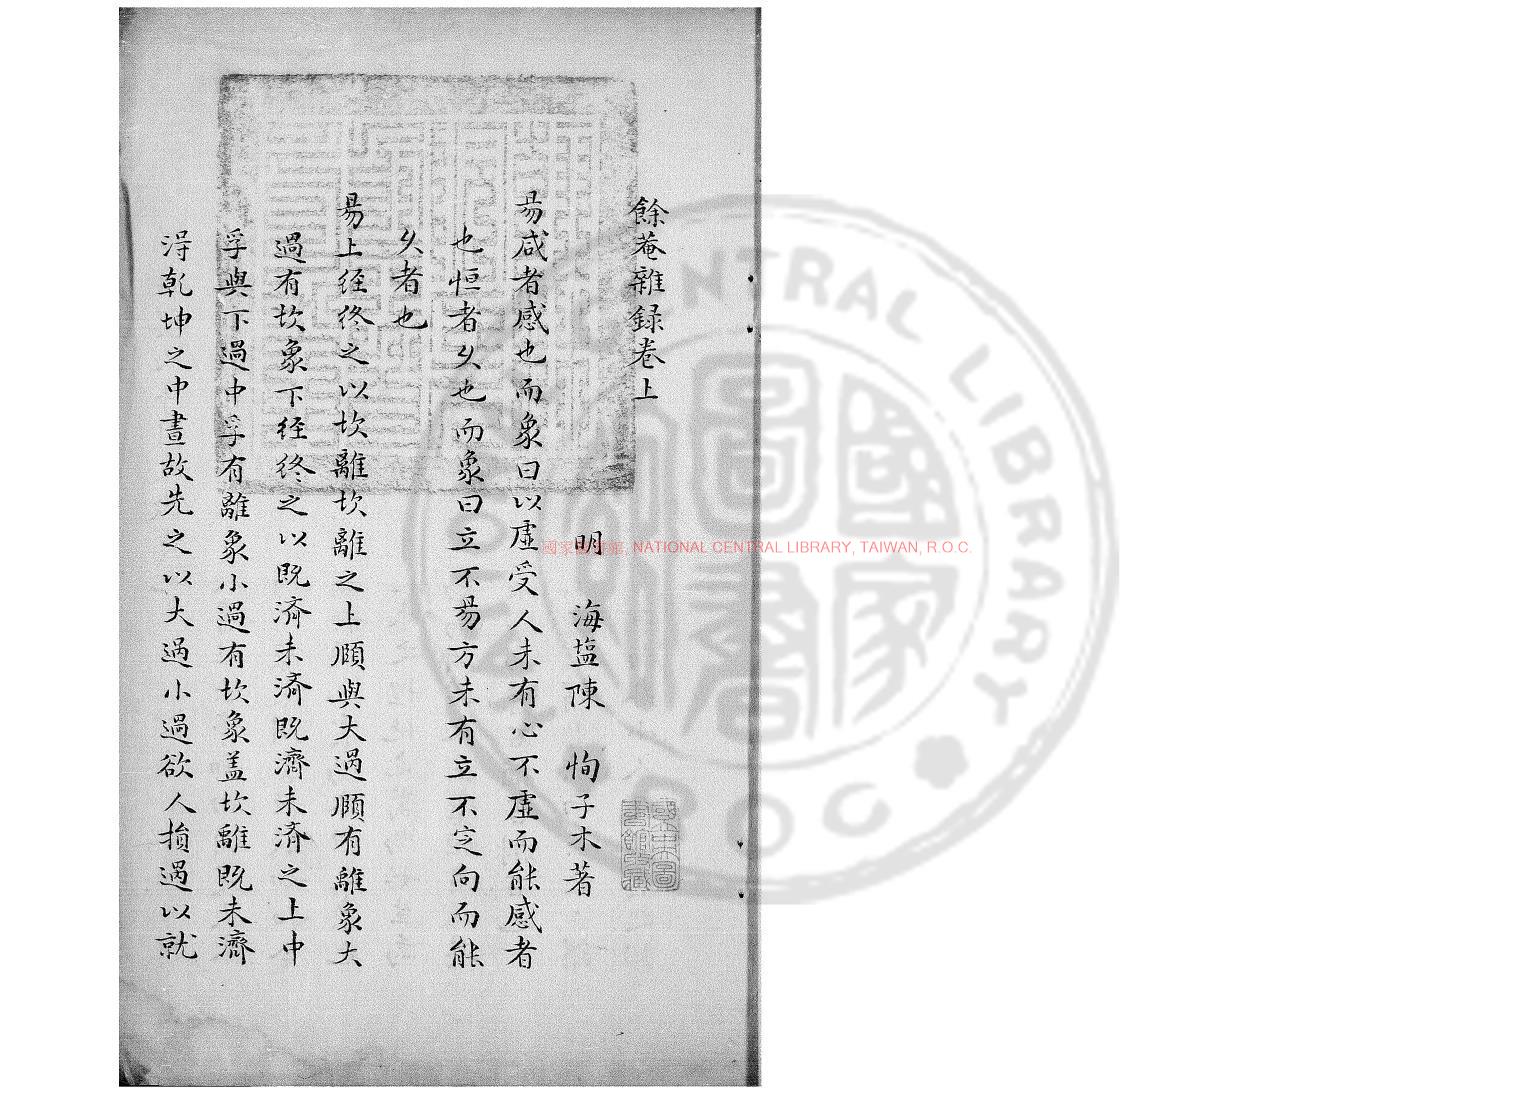 餘菴雜録卷上
明 海塩陳 恂子木著
昜咸者感也而象曰以虛受人未有心不虛而能感者
也恒者乆也而象曰立不昜方未有立不定向而能
乆者也
昜上经终之以坎離坎離之上頤與大過頤有離象大
過有坎象下经终之以既济未济既濟未济之上中
孚與下過中孚有離象小過有坎象盖坎離既未濟
淂乾坤之中畫故先之以大過小過欲人損過以就
國家圖書館, NATIONAL CENTRAL LIBRARY, TAIWAN, R.O.C.